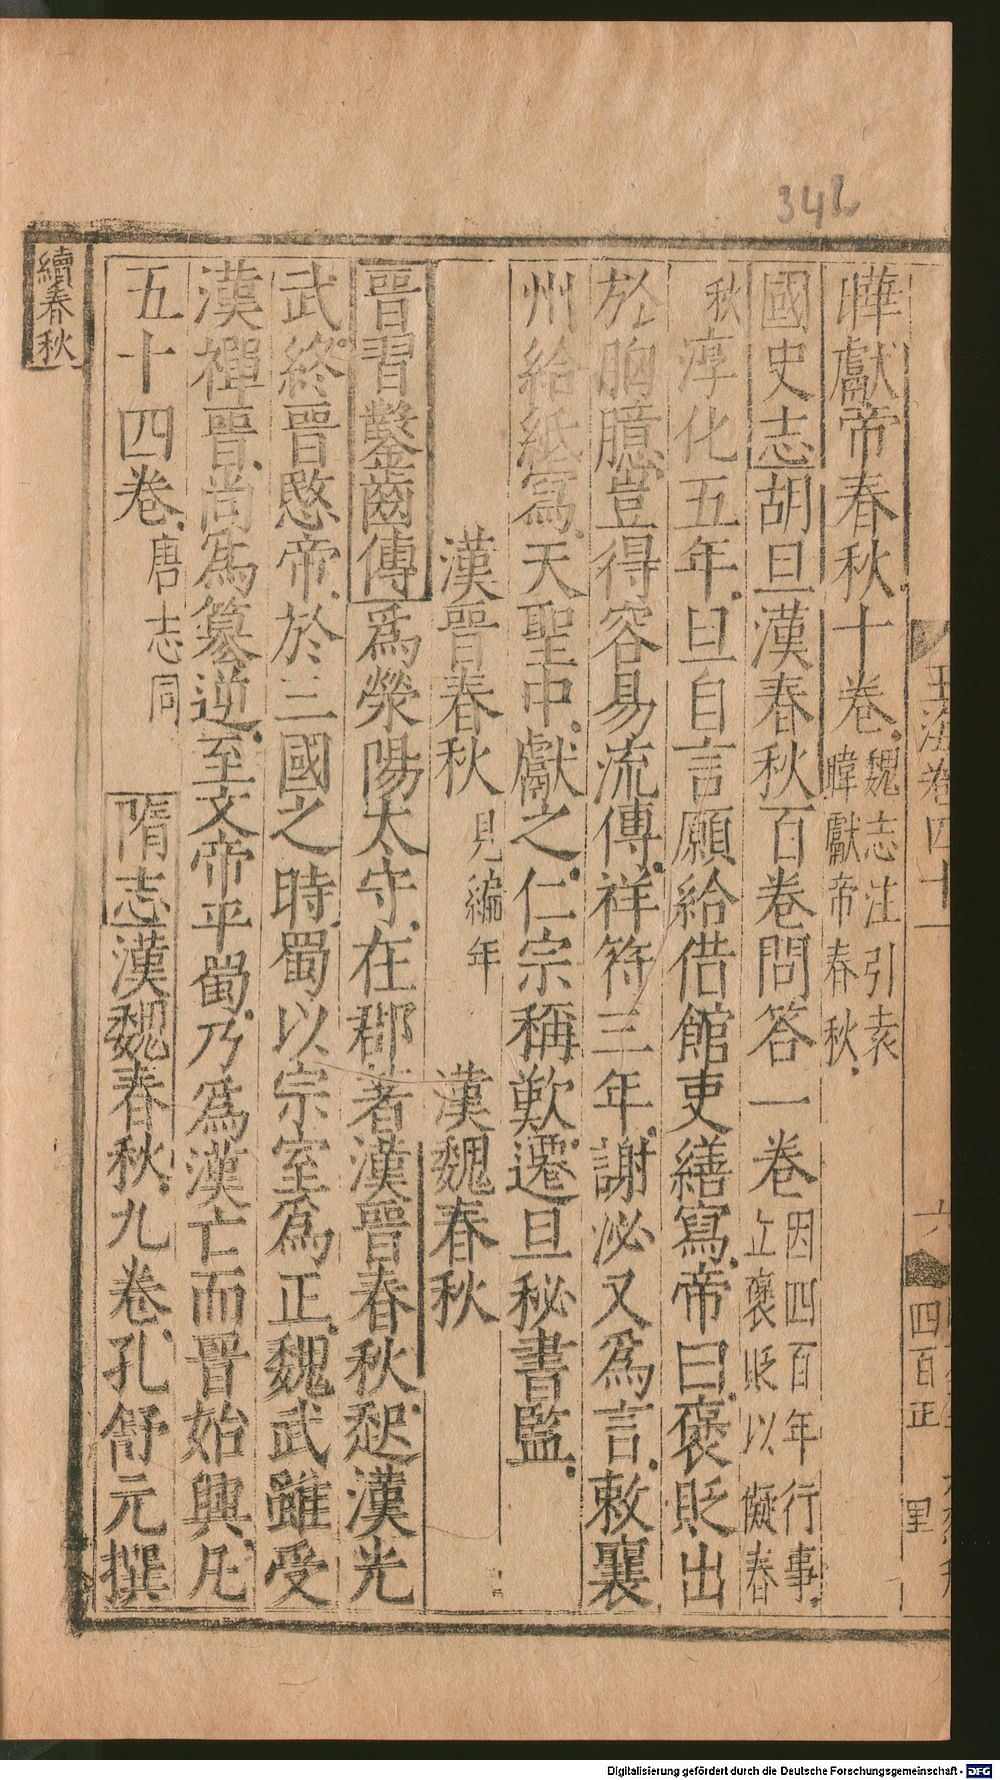 342
曄獻帝春秋十卷魏志注引袁暐獻帝春秋
國史志胡旦漢春秋百卷問答一卷因四百年行事立褒貶以儗春
秋淳化五年旦自言願給借館吏繕寫帝曰褒貶出
於胸臆豈得容易流傳祥符三年謝泌又爲言敕襄
州給紙寫天聖中獻之仁宗稱歎遷旦秘書監
漢晉春秋見編年 漢魏春秋
晉習鑿齒傳爲滎陽太守在郡著漢晉春秋起漢光
武終晉愍帝於三國之時蜀以宗室爲正魏武雖受
漢禪晉尚爲篡逆至文帝平蜀乃爲漢亡而晉始興凡
五十四卷唐志同 隋志漢魏春秋九卷孔舒元撰
續春秋
玉海卷四十一
六
四百正
里
Digitalisierung gefördert durch die Deutsche Forschungsgemeinschaft - DFG